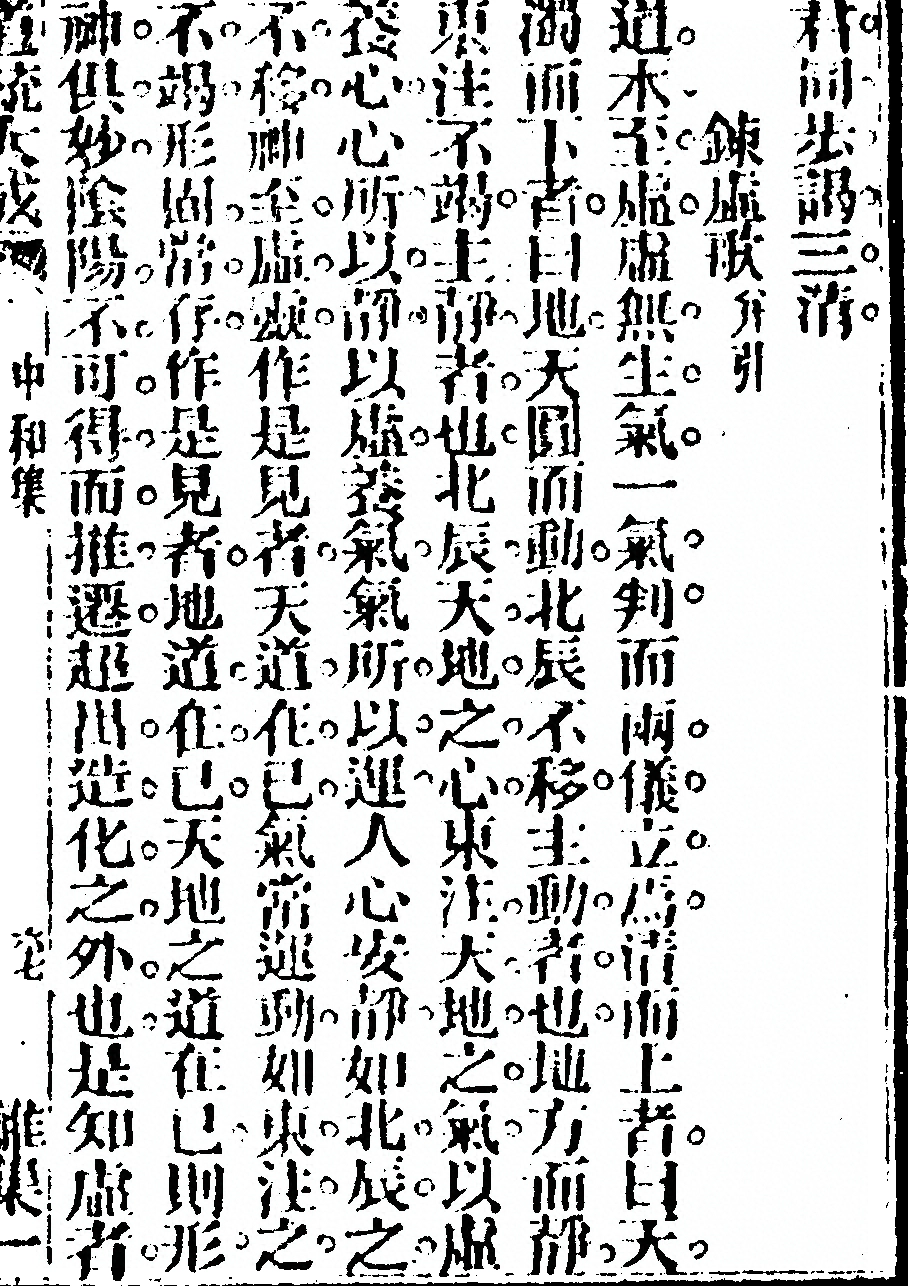 君同去謁三清
鍊虛歌并引
道本至虛虛無生氣一氣判而兩儀立焉清而上者曰天
濁而下者曰地天圓而動北辰不移主動者也地方而靜
東注不竭主靜者也北辰天地之心東注天地之氣以虛
養心心所以靜以虛養氣氣所以運人心安靜如北辰之
不移神至虛靈作是見者天道在已氣常運動如東注之
不竭形固常存作是見者地道在已天地之道在已則形
神俱妙陰陽不可得而推遷超出造化之外也是知虛者
中和集